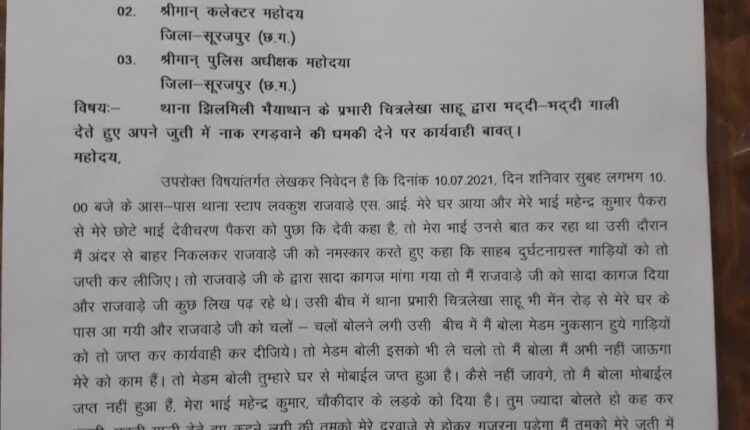 02. श्रीमान् कलेक्टर महोदय
जिला–सूरजपुर (छ.ग.)
03. श्रीमान् पुलिस अधीक्षक महोदया
जिला–सूरजपुर (छ.ग.)
विषयः– थाना झिलमिली भैयाथान के प्रभारी चित्रलेखा साहू द्वारा भद्दी–भद्दी गाली
देते हुए अपने जुती में नाक रगड़वाने की धमकी देने पर कार्यवाही बावत्।
महोदय,
उपरोक्त विषयांतर्गत लेखकर निवेदन है कि दिनांक 10.07.2021, दिन शनिवार सुबह लगभग 10.
00 बजे के आस–पास थाना स्टाप लवकुश राजवाड़े एस. आई. मेरे घर आया और मेरे भाई महेन्द्र कुमार पैकरा
से मेरे छोटे भाई देवीचरण पैकरा को पुछा कि देवी कहा है, तो मेरा भाई उनसे बात कर रहा था उसी दौरान
मैं अंदर से बाहर निकलकर राजवाड़े जी को नमस्कार करते हुए कहा कि साहब दुर्घटनाग्रस्त गाड़ियों को तो
जप्ती कर लीजिए। तो राजवाड़े जी के द्वारा सादा कागज मांगा गया तो मैं राजवाड़े जी को सादा कागज दिया
और राजवाड़े जी कुछ लिख पढ़ रहे थे। उसी बीच में थाना प्रभारी चित्रलेखा साहू भी मेंन रोड़ से मेरे घर के
पास आ गयी और राजवाड़े जी को चलों – चलों बोलने लगी उसी बीच में मैं बोला मेडम नुकसान हुये गाड़ियों
को तो जप्त कर कार्यवाही कर दीजिये। तो मेडम बोली इसको भी ले चलो तो मैं बोला मैं अभी नहीं जाऊगा
मेरे को काम हैं। तो मेडम बोली तुम्हारे घर से मोबाईल जप्त हुआ है। कैसे नहीं जावगे, तो मै बोला मोबाईल
जप्त नहीं हुआ हैं, मेरा भाई महेन्द्र कुमार, चौकीदार के लड़के को दिया है। तुम ज्यादा बोलते हो कह कर
गाली देते हुए कहने लगी की तुमको मेरे दरवाजे से होकर गुजरना पड़ेगा मैं तुमको मेरे जुती में